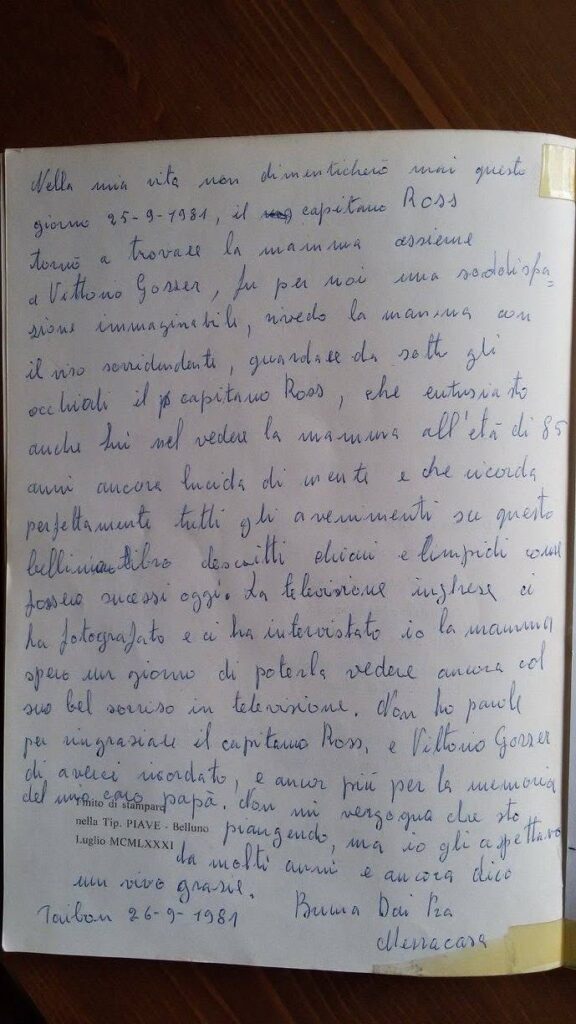 Nella mia vita non dimenticherò mai questo
giorno 25-9-1981, il capitano Ross
tornò a trovare la mamma assieme
a Vittorio Gosser, fu per noi una soddisfa-
zione immaginabile, rivedo la mamma con
il viso sorridendente, guardare da sotto gli
occhiali il capitano Ross, che entusiasto
anche lui nel vedere la mamma all'età di 85
anni ancora lucida di mente e che ricorda
perfettamente tutti gli avenimenti su questo
libro descritti chiari e limpidi come
fossero sucessi oggi. La televisione inglese ci
ha fotografato e ci ha intervistato io la mamma
spero un giorno di poterla vedere ancora col
suo bel sorriso in televisione. Non ho parole
per ringraziare il capitano Ross, e Vittorio Gosser
di averci ricordato, e ancor più per la memoria
del mio caro papà. Non mi vergogna che sto
Finito di stampare
nella Tip. PIAVE - Belluno
Luglio MCMLXXXI
piangendo, ma io gli aspettavo
da molti anni e ancora dico
un vivo grazie.
Taibon 26-9-1981 Bruna Dai Pra